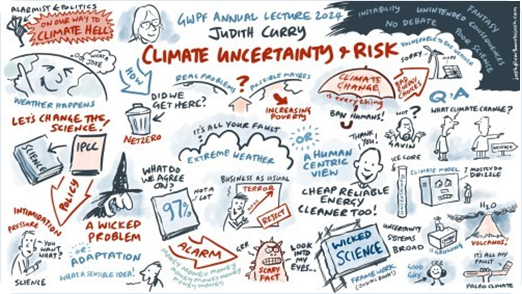 ALARMIST & POLITICS
"ON OUR WAY TO
CLIMATE HELL"
GWPF ANNUAL LECTURE 2024
JUDITH CURRY
CLIMATE UNCERTAINTY & RISK
INSTABILITY
UNINTENDED CONSEQUENCES
FANTASY
NO DEBATE
POOR SCIENCE
WHAT A
JOKE
WEATHER HAPPENS
HOW
DID WE
GET HERE?
NETZERO
REAL PROBLEMS
?
POSSIBLE MAYBES
INCREASING
POVERTY
CLIMATE
CHANGE
is everything
BAN HUMANS!
SORRY
VULNERABLE TO BAD WEATHER
BAD
ENERGY
CHOICES
Q&A
WHAT CLIMATE CHANGE?
LET'S CHANGE THE
SCIENCE!
SCIENCE
IPCC
POLICY
IT'S ALL YOUR FAULT
EXTREME WEATHER
OR
A HUMAN
CENTRIC
VIEW
THANK
YOU!
WHY
NOT?
GAVIN
ICE CORE
CLIMATE MODEL
MOSTLY
DRIZZLE
WHAT DO WE
AGREE
ON?
NOT A
LOT
97%
BUSINESS AS USUAL
TERROR
REJECT
CHEAP RELIABLE
ENERGY
CLEANER TOO!
INTIMIDATION
PRESSURE
YOU
WANT
WHAT?
SCIENCE
A WICKED
PROBLEM
OR
ADAPTATION
WHAT A SENSIBLE IDEA!
ALARM
MONEY MONEY MONEY
GRR
SCARY
FACT
LOOK
INTO MY
EYES...
WICKED
SCIENCE
FRAMEWORK
UNCERTAINTY
IS
BROAD
GOOD
GUY
H2O
VOLCANOS!
IT'S ALL MY
FAULT
PALEO CLIMATE